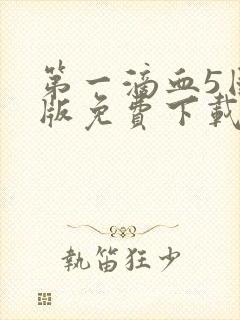 第一滴血5国
版免費下載
執笛狂少